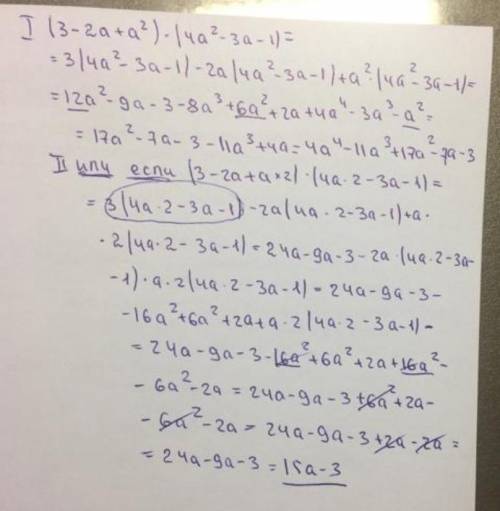 I (3-2a+a²)·(4a²-3a-1)=
=3(4a²-3a-1)-2a(4a²-3a-1)+a²·(4a²-3a-1)=
=12a²-9a-3-8a³+6a²+2a+4a⁴-3a³-a²=
=17a²-7a-3-11a³+4a=4a⁴-11a³+17a²-7a-3
II или если (3-2a+a×2)·(4a·2-3a-1)=
=3(4a·2-3a-1)-2a(4a·2-3a-1)+a·
·2(4a·2-3a-1)=24a-9a-3-2a·(4a·2-3a-
-1)·a·2(4a·2-3a-1)=24a-9a-3-
-16a²+6a²+2a+a·2(4a·2-3a-1)-
=24a-9a-3-16a²+6a²+2a+16a²-
-6a²-2a=24a-9a-3+6a²+2a-
-6a²-2a=24a-9a-3+2a-2a=
=24a-9a-3=15a-3